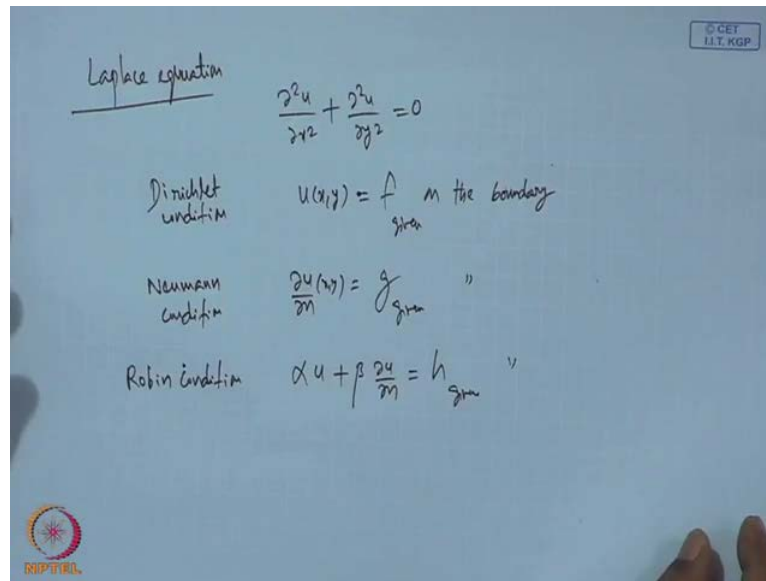 © CET
I.I.T. KGP
Laplace equation
∂²u/∂x² + ∂²u/∂y² = 0
Dirichlet condition u(x,y) = f given on the boundary
Neumann condition ∂u/∂n (x,y) = g given "
Robin condition αu + β ∂u/∂n = h given "
NPTEL